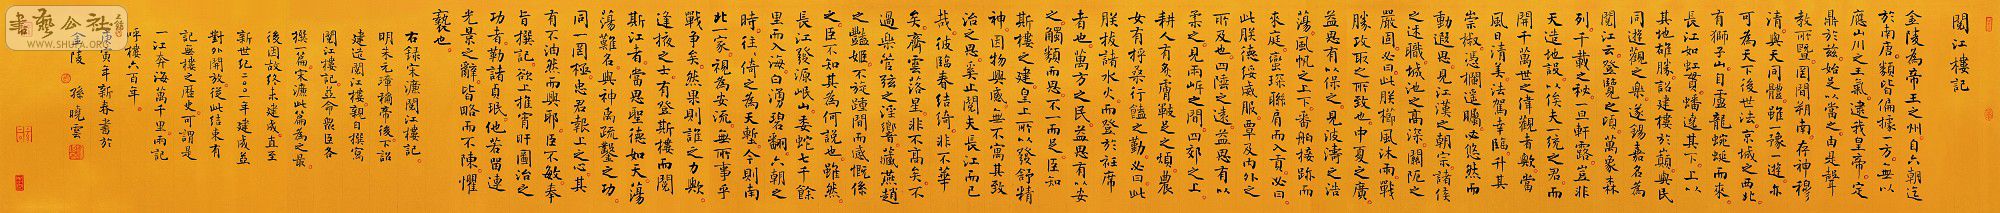 閱江樓記
金陵為帝王之州自六朝迄
於南唐類皆偏據一方無以
應山川之王氣逮我皇帝定
鼎於茲始足以當之由是聲
教所暨罔間朔南存神穆
清與天同體雖一豫一遊亦
可為天下後世法京城之西北
有獅子山自盧龍蜿蜒而來
長江如虹貫蟠遶其下上以
其地雄勝詔建樓於巔與民
同遊觀之樂遂錫嘉名為
閱江云登覽之頃萬象森
列千載之秘一旦軒露豈非
天造地設以俟夫一統之君而
開千萬世之偉觀者歟當
風日清美法駕幸臨升其
崇椒憑欄遥矚必悠然而
動遐思見江漢之朝宗諸侯
之述職城池之高深關阨之
嚴固必曰此朕櫛風沐雨戰
勝攻取之所致也中夏之廣
益思有以保之見波濤之浩
蕩風帆之上下番舶接跡而
來庭蠻琛聯肩而入貢必曰
此朕德綏威服覃及內外之
所及也四陲之遠益思有以
柔之見兩岸之間四郊之上
耕人有炙膚皸足之煩農
女有捋桑行饁之勤必曰此
朕拔諸水火而登於衽席
者也萬方之民益思有以安
之觸類而思不一而足臣知
斯樓之建皇上所以發舒精
神因物興感無不寓其致
治之思奚止閱夫長江而已
哉彼臨春結綺非不華
矣齊雲落星非不高矣不
過樂管弦之淫響藏燕趙
之豔姬不旋踵間而感慨係
之臣不知其為何說也雖然
長江發源岷山委蛇七千餘
里而入海白湧碧翻六朝之
時往往倚之為天塹今則南
北一家視為安流無所事乎
戰爭矣然果則誰之力歟
逢掖之士有登斯樓而閱
斯江者當思聖德如天蕩
蕩難名與神禹疏鑿之功
同一罔極忠君報上之心其
有不油然而興耶臣不敏奉
旨撰記欲上推宵旰圖治之
功者勒諸貞珉他若留連
光景之辭皆略而不陳懼
褻也
右錄宋濂閱江樓記
明朱元璋稱帝後下詔
建造閱江樓親自撰寫
閱江樓記並命眾臣各
撰一篇宋濂此篇為之最
後因故終未建成直至
新世紀二〇〇一年建成並
對外開放從此結束有
記無樓之歷史可謂是
一江奔海萬千里兩記
呼樓六百年
庚寅年新春書於
金陵 孫曉雲
書藝公社
WWW.SHUFA.ORG